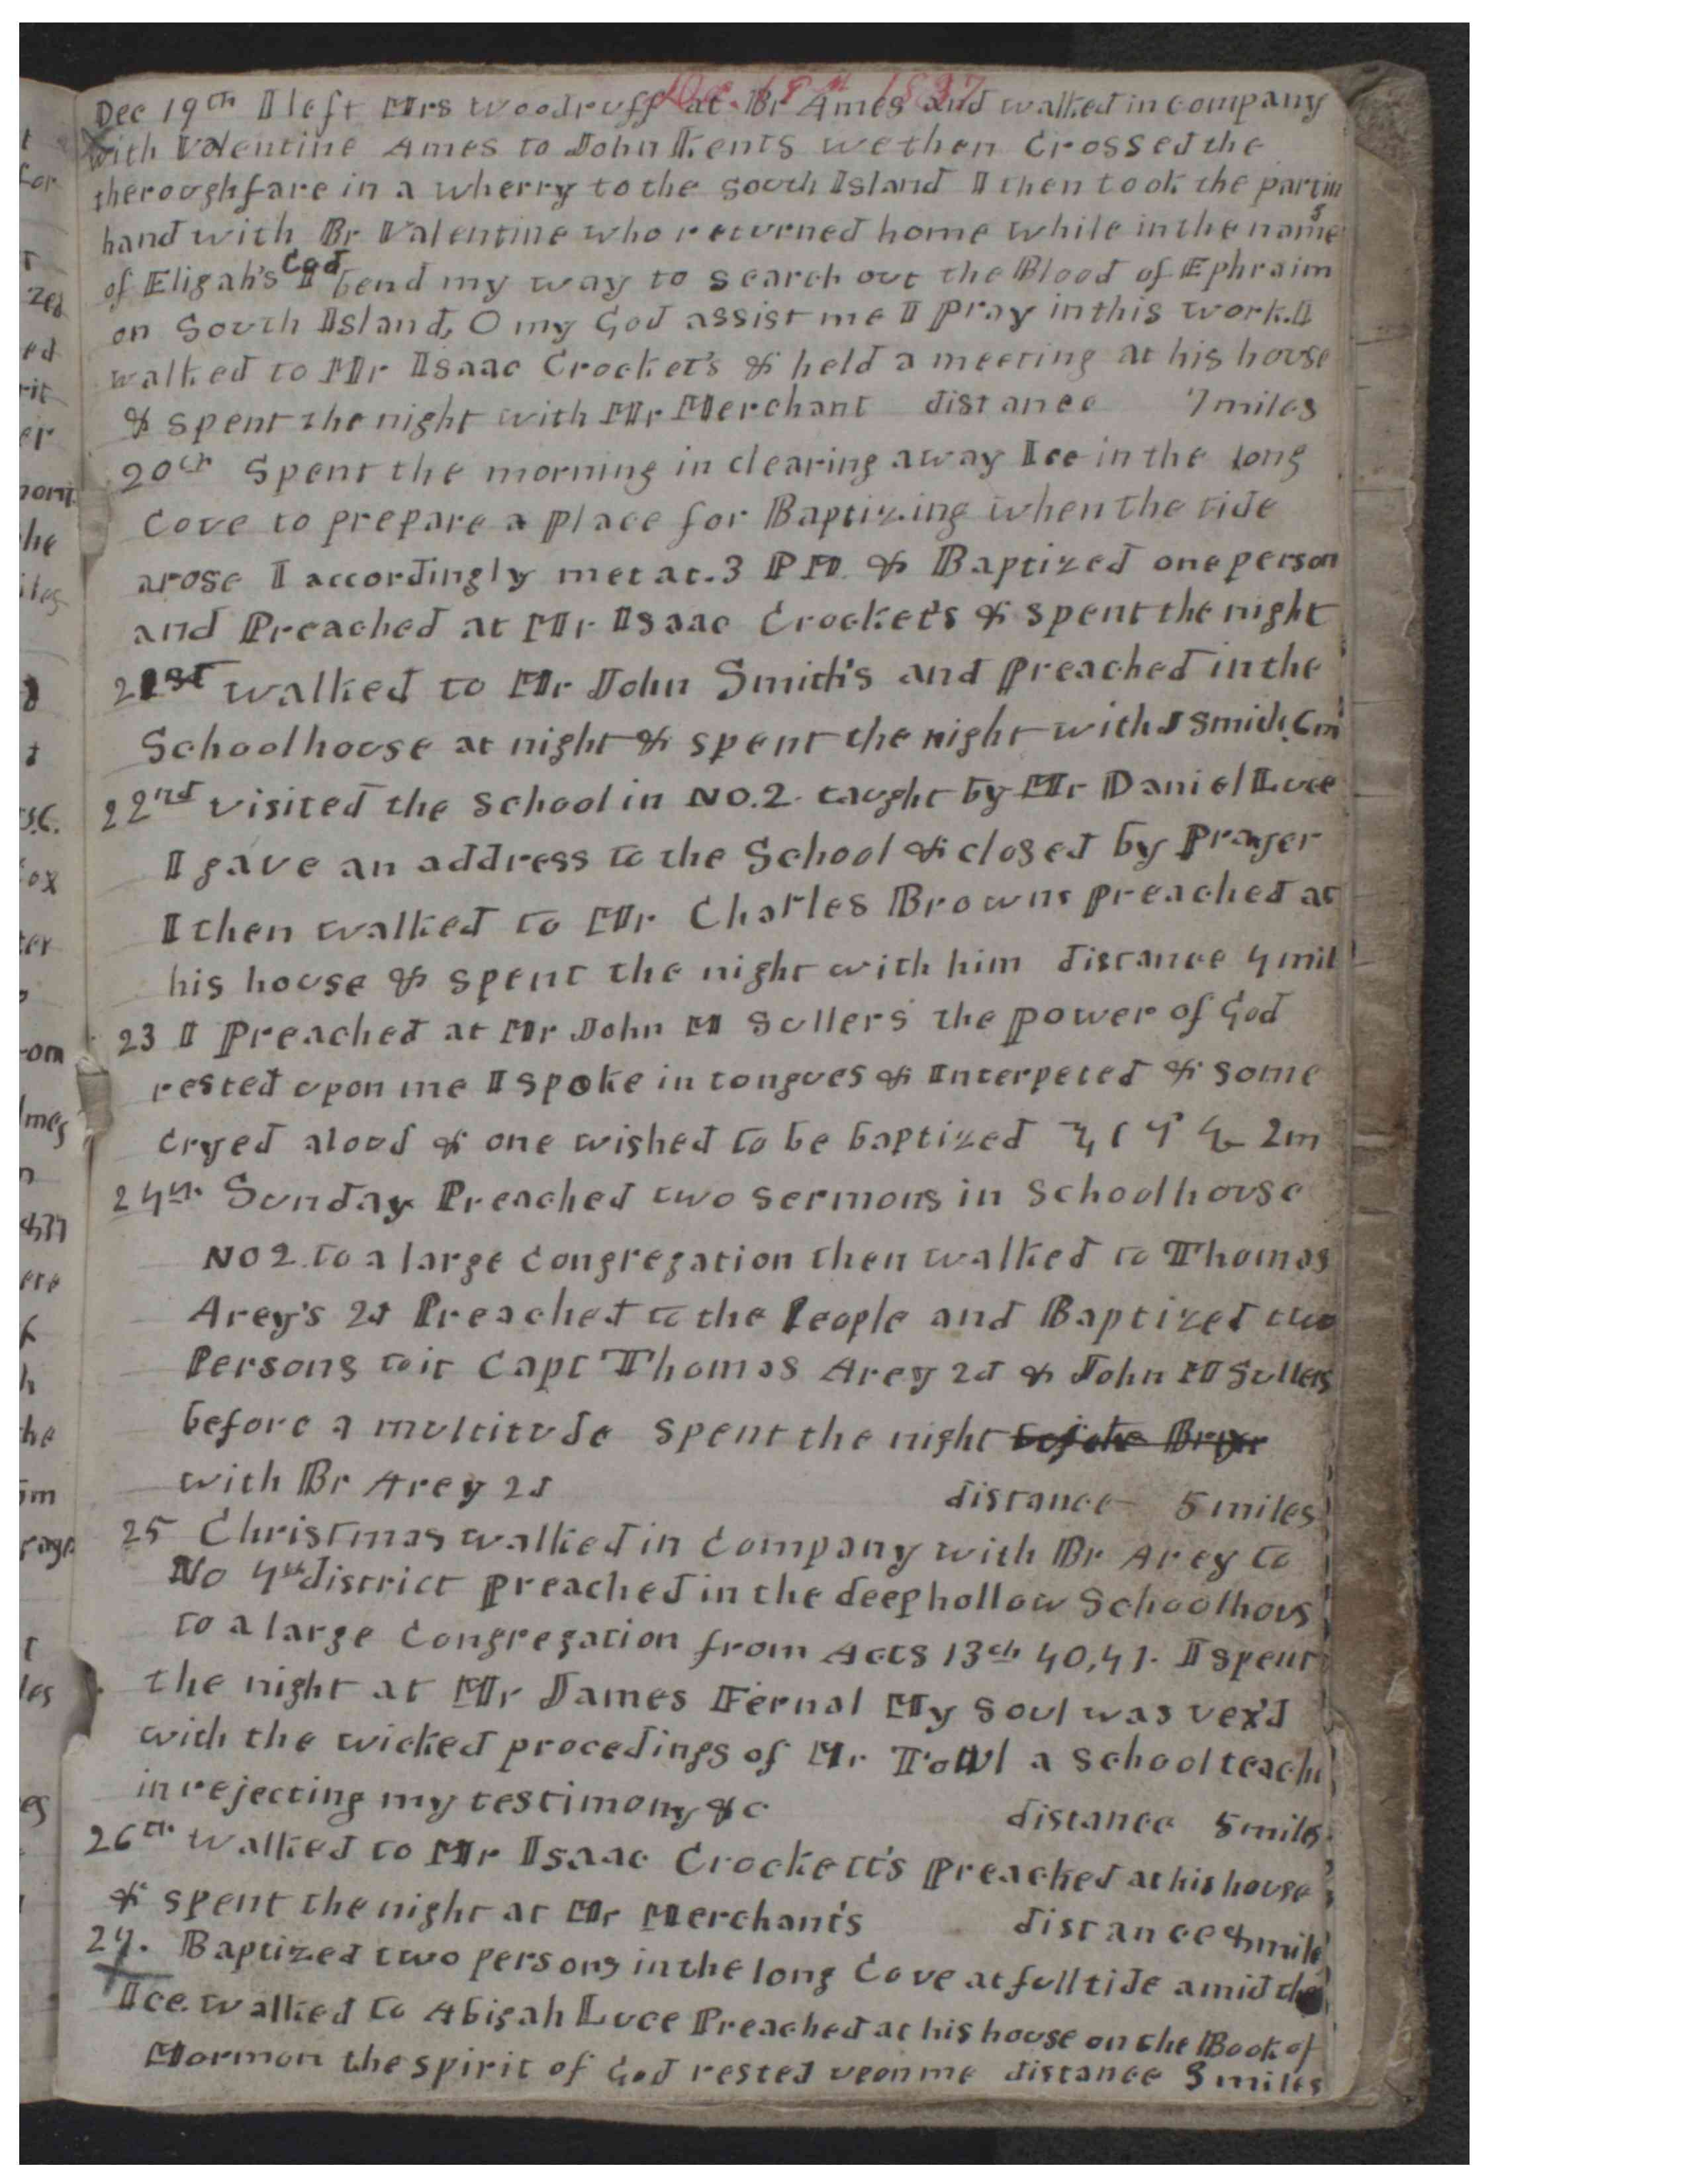 Dec. 18th 1837
Dec 19th I left Mrs Woodruff at Br Ames and walked in company
with Valentine Ames to John Kents we then Crossed the
theroughfare in a wherry to the South Island I then took the parting
hand with Br Valentine who returned home while in the name
of Eligah's God I bend my way to search out the Blood of Ephraim
on South Island, O my God assist me I pray in this work. I
walked to Mr Isaac Crocket's & held a meeting at his house
& spent the night with Mr Merchant distance 7 miles
20th Spent the morning in clearing away Ice in the long
Cove to prepare a place for Baptizing when the tide
arose I accordingly met at. 3 PM. & Baptized one person
and Preached at Mr Isaac Crocket's & spent the night
21st walked to Mr John Smith's and preached in the
Schoolhouse at night & spent the night with J Smith. 6m
22nd visited the School in No. 2. taught by Mr Daniel Luce
I gave an address to the School & closed by Prayer
I then walked to Mr Charles Browns preached at
his house & spent the night with him distance 4 mil
23 I Preached at Mr John M Sullers the power of God
rested upon me I spoke in tongues & Interpeted & some
Cryed aloud & one wished to be baptized 2m
24th. Sunday Preached two sermons in Schoolhouse
No 2. to a large Congregation then walked to Thomas
Arey's 2d Preached to the People and Baptized two
Persons to it Capt Thomas Arey 2d & John M Sullers
before a multitude spent the night
with Br Arey 2d distance 5 miles
25 Christmas walked in Company with Br Arey to
No 4th district preached in the deep hollow Schoolhous
to a large Congregation from Acts 13th 40,41. I spent
the night at Mr James Fernal My Soul was vex'd
with the wicked procedings of Mr Towl a School teach
in rejecting my testimony &c distance 5 miles
26th walked to Mr Isaac Crockett's preached at his house
& spent the night at Mr Merchant's distance mile
27. Baptized two persons in the long Cove at full tide amid the
Ice. walked to Abigah Luce Preached at his house on the Book of
Mormon the spirit of God rested upon me distance 3 miles